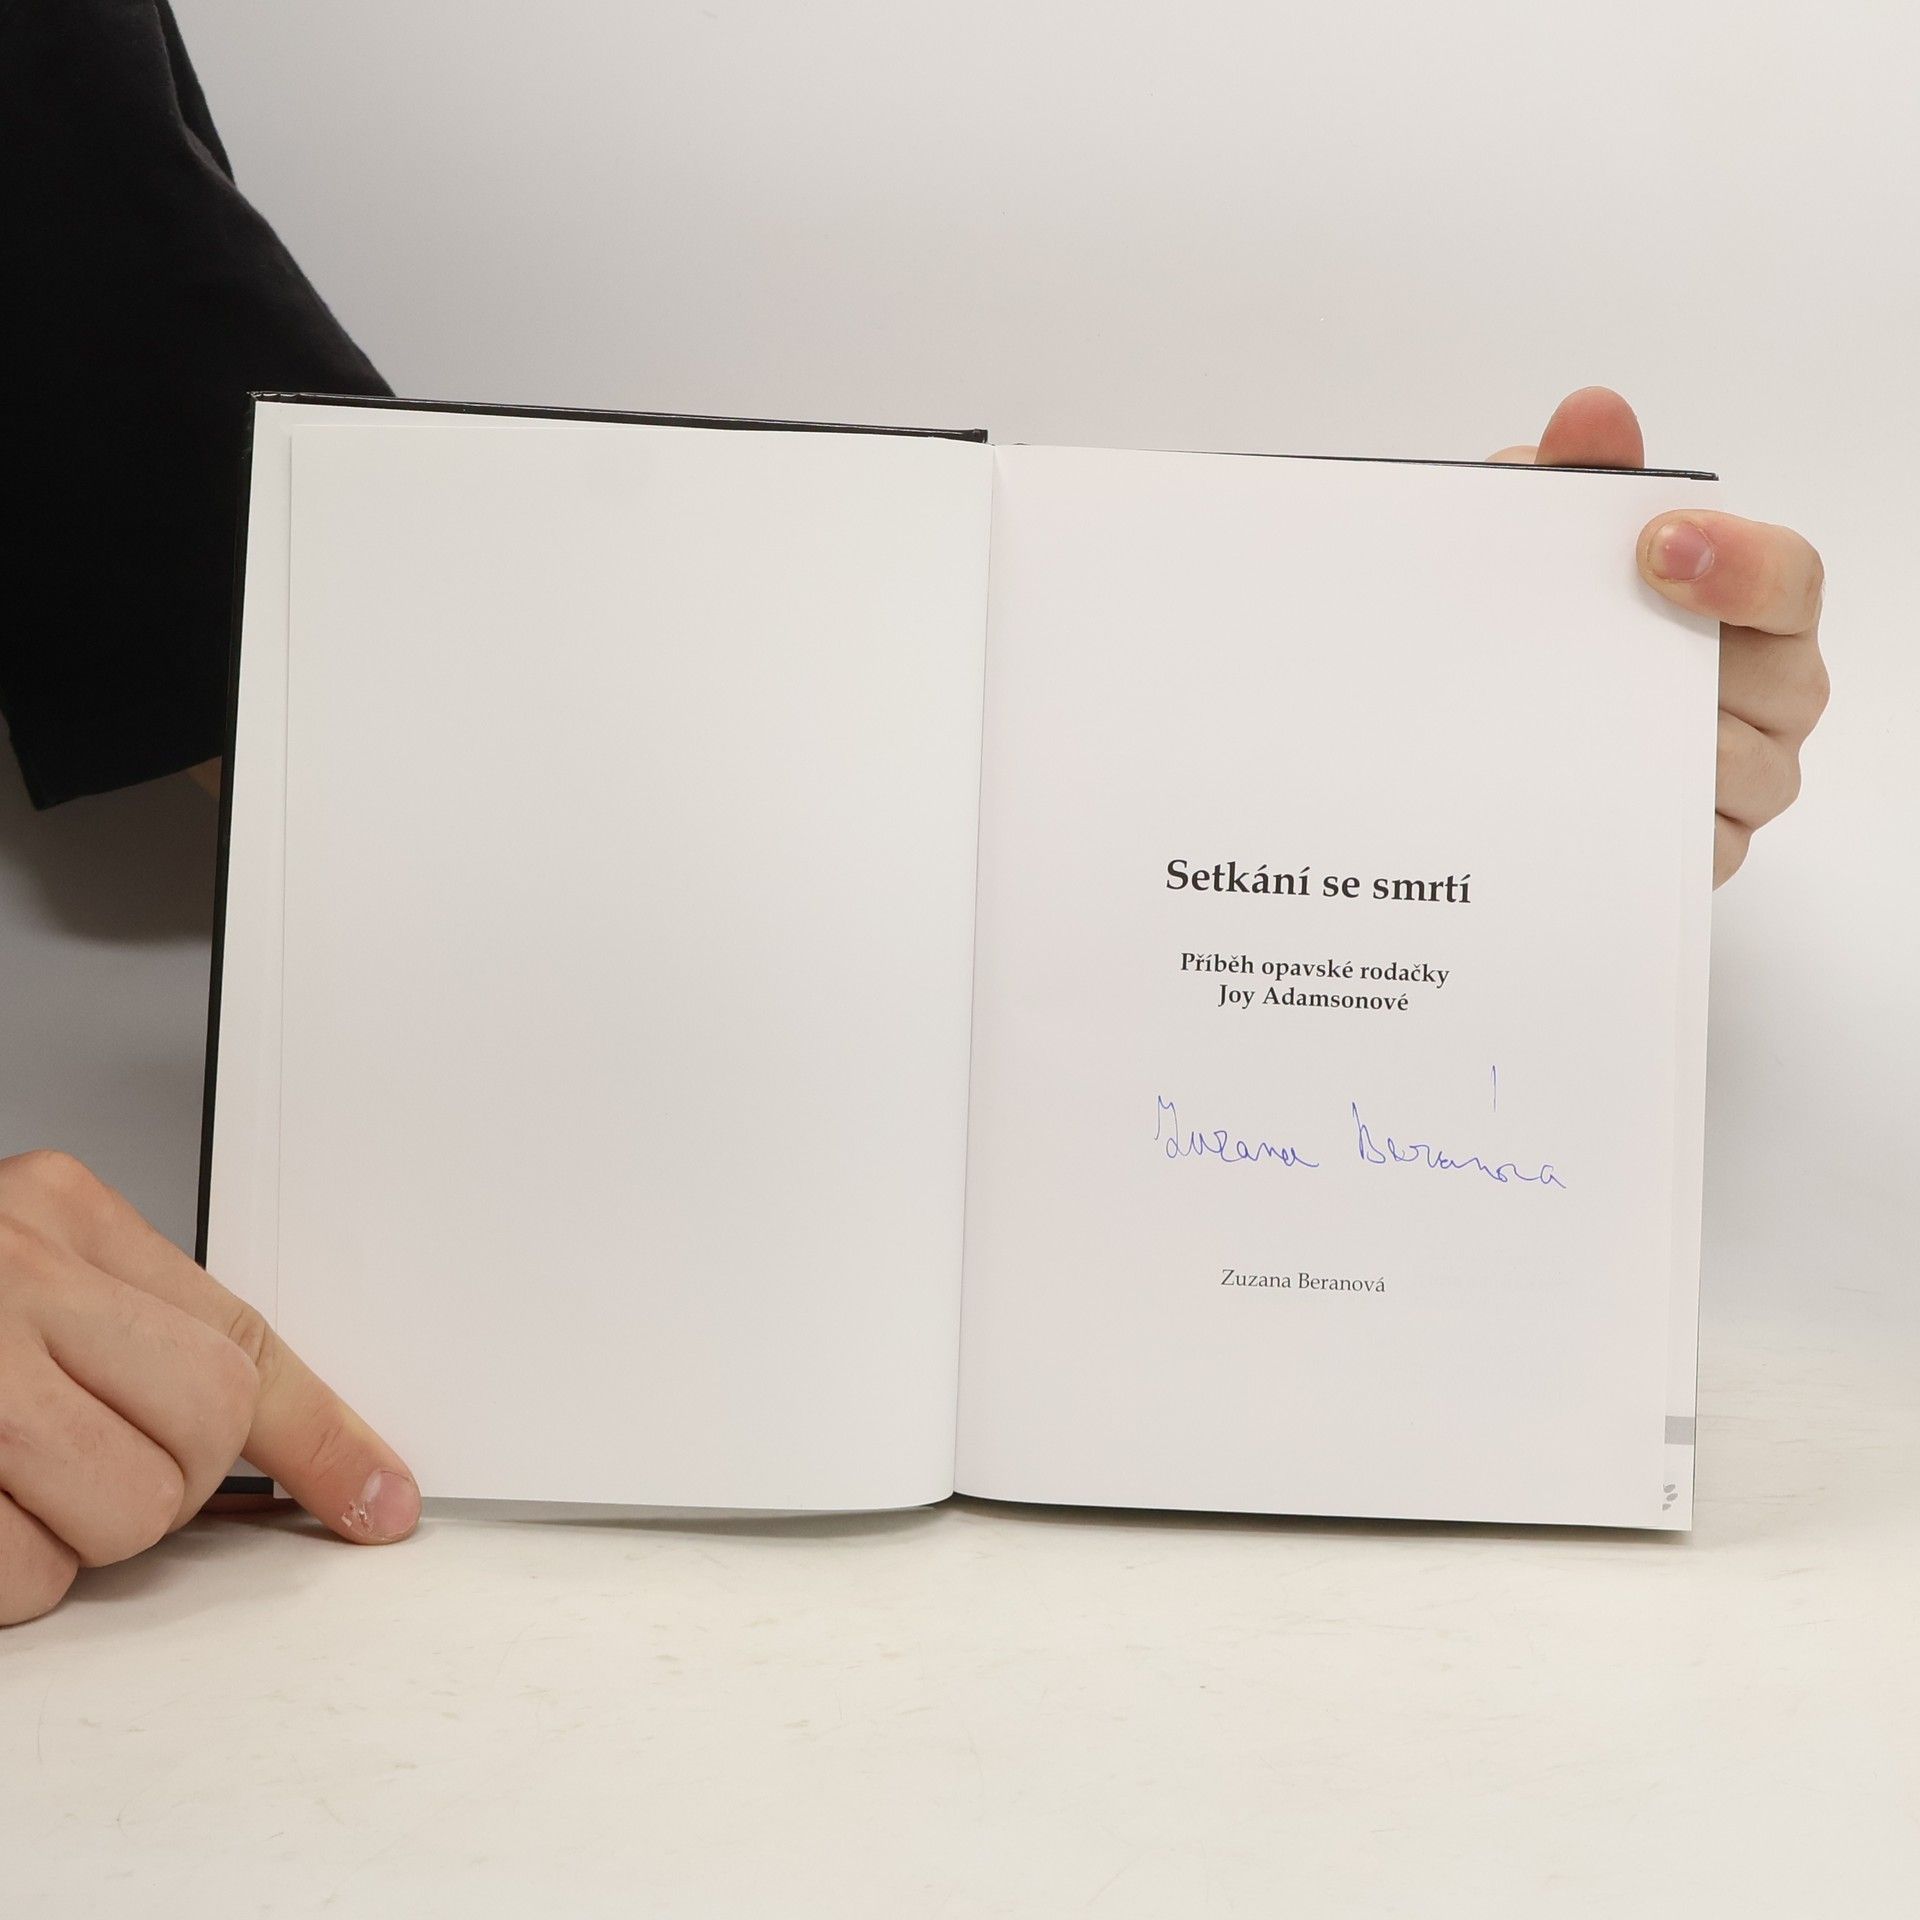 Setkání se smrtí
Příběh opavské rodačky
Joy Adamsonové
Zuzana Beranová
Zuzana Beranová